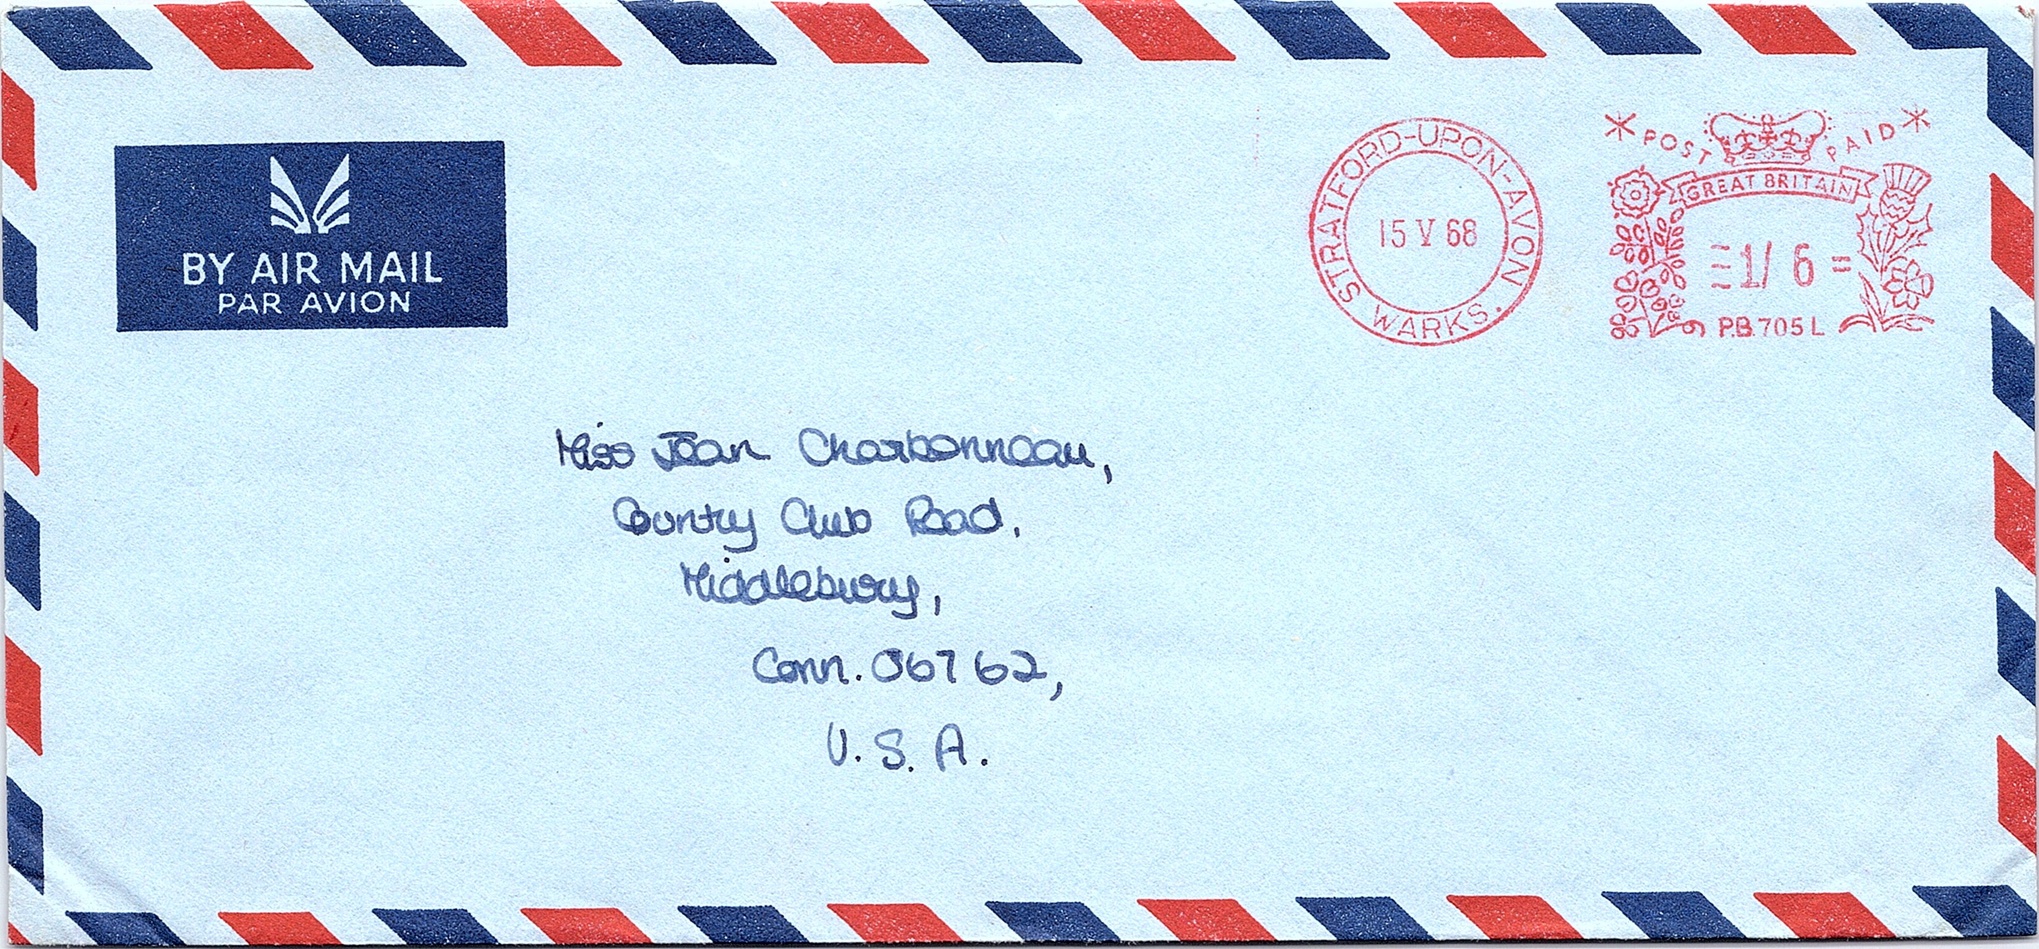 BY AIR MAIL
PAR AVION
STRATFORD-UPON-AVON
WARKS.
15 V 68
POST PAID
GREAT BRITAIN
1/ 6
P.B.705L
Miss Joan Charbonneau,
Country Club Road,
Middlebury,
Conn. 06762,
U.S.A.